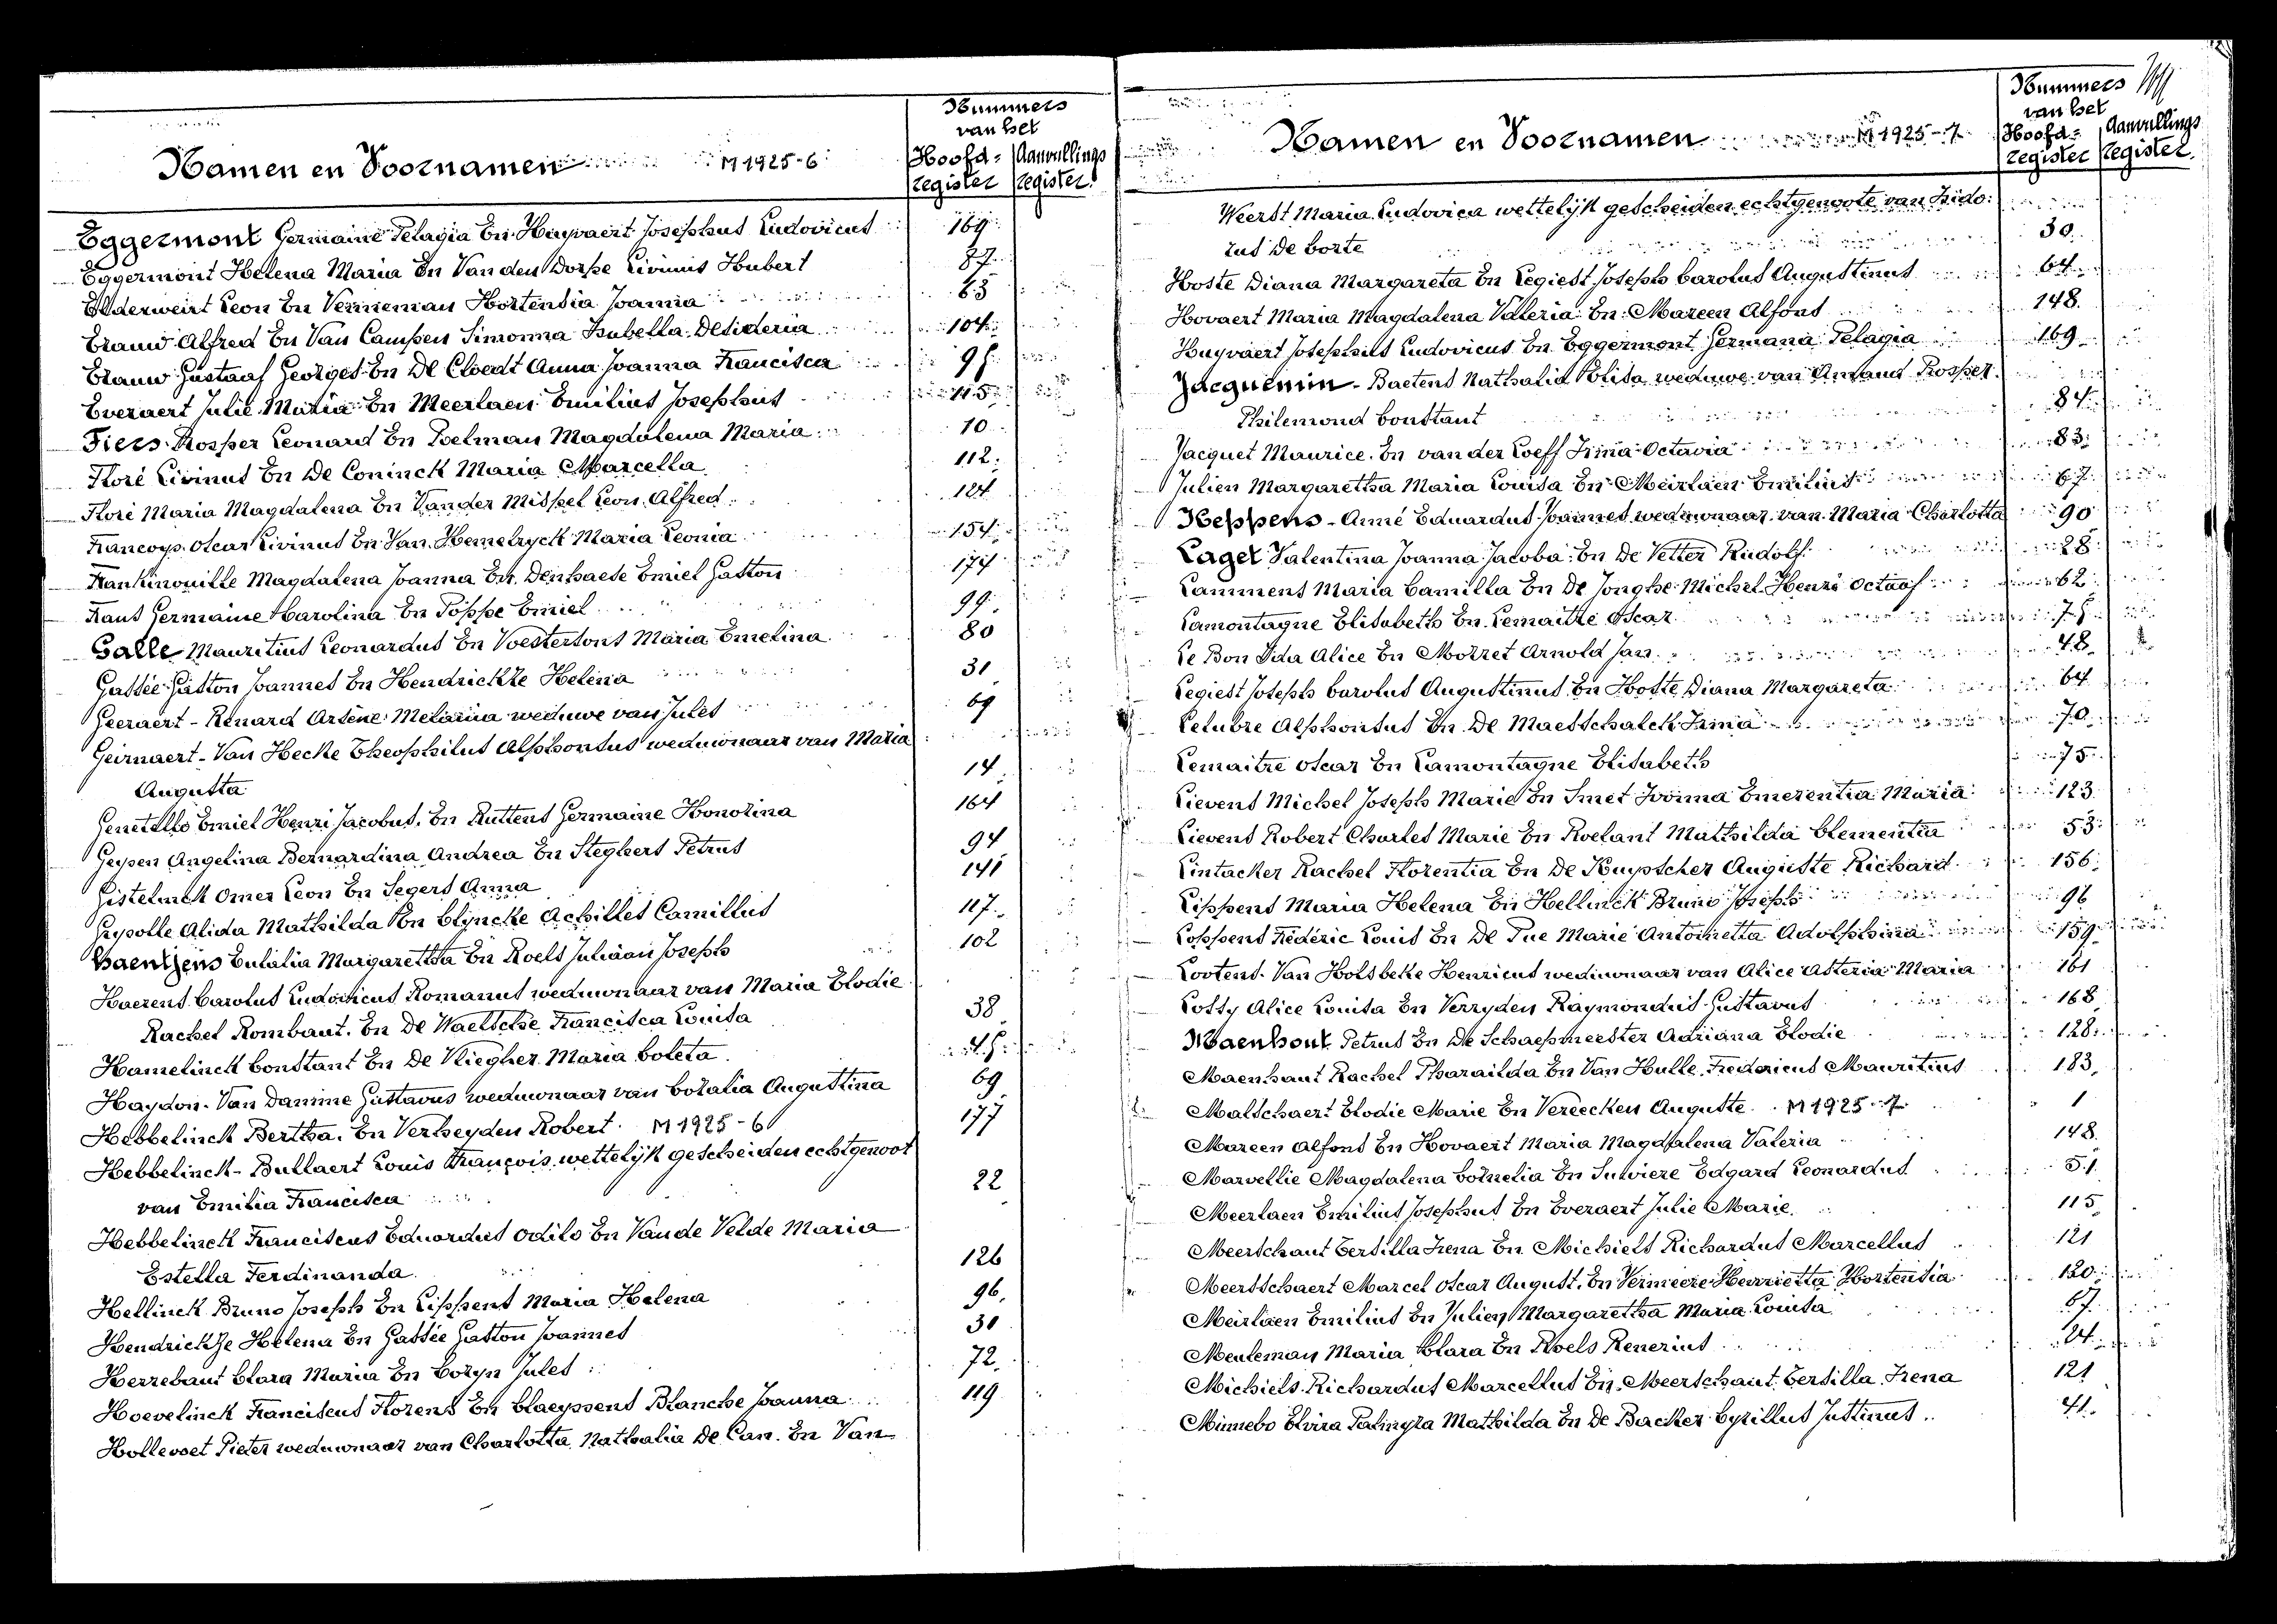 Nummers
van het
Namen en Voornamen M 1925-6 Hoofd= Aanvullings
register register
Eggermont Germaine Pelagia En Huyvaert Josephus Ludovicus 169
Eggermont Helena Maria En Van den Dorpe Livinus Hubert 87
Elderweirt Leon En Venneman Hortensia Joanna 63
Erauw Alfred En Van Campen Simonna Isabella Desideria 104
Erauw Gustaaf Georges En De Cloedt Anna Joanna Francisca
Everaert Julie Maria En Meerlaen Emilius Josephus 115
Fiers Prosper Leonard En Poelman Magdalena Maria 10
Floré Livinus En De Coninck Maria Marcella 112
Floré Maria Magdalena En Vander Mispel Leon Alfred 124
Françoys Oscar Livinus En Van Hemelryck Maria Leonia 154
Frankinouille Magdalena Joanna En Denhaese Emiel Gaston 174
Frans Germaine Karolina En Poppe Emiel 99
Galle Mauritius Leonardus En Voestersons Maria Emelina 80
Gassée Gaston Joannes En Hendrickze Helena 31
Geeraert - Renard Arsène Melania weduwe van Jules 69
Geirnaert - Van Hecke Theophilus Alphonsus weduwnaar van Maria
Augusta 14
Genetello Emiel Henri Jacobus En Ruttens Germaine Honorina 164
Geysen Angelina Bernardina Andrea En Steghers Petrus 94
Gistelinck Omer Leon En Segers Anna 141
Gysolle Alida Mathilda En Clyncke Achilles Camillus 117
Haentjens Eulalia Margaretha En Roels Juliaan Joseph 102
Haerens Carolus Ludovicus Romanus weduwnaar van Maria Elodie
Rachel Rombaut. En De Waelsche Francisca Louisa 38
Hamelinck Constant En De Vliegher Maria Coleta
Haydon - Van Damme Gustavus weduwnaar van Coralia Augustina 69
Hebbelinck Bertha. En Verheyden Robert. M 1925 - 6 177
Hebbelinck - Bullaert Louis François wettelijk gescheiden echtgenoot
van Emilia Francisca 22
Hebbelinck Franciscus Eduardus Odilo En Van de Velde Maria
Estella Ferdinanda 126
Hellinck Bruno Joseph En Lippens Maria Helena 96
Hendrickze Helena En Gassée Gaston Joannes 31
Herrebaut Clara Maria En Coryn Jules 72
Hoevelinck Franciscus Florens En Claeyssens Blanche Joanna 119
Hollevoet Pieter weduwnaar van Charlotta Nathalia De Can. En Van
Nummers
van het
Namen en Voornamen M 1925-7 Hoofd= Aanvullings
register register
Weerst Maria Ludovica wettelijk gescheiden echtgenoote van Isido=
rus De Corte 30
Hoste Diana Margareta En Legiest Joseph Carolus Augustinus 64
Hovaert Maria Magdalena Valeria En Mareen Alfons 148
Huyvaert Josephus Ludovicus En Eggermont Germana Pelagia 169
Jacquemin - Baetens Nathalia Polisa weduwe van Amand Prosper
Philemond Constant 84
Jacquet Maurice En van der Loeff Irma Octavia 83
Julien Margaretha Maria Louisa En Meirlaen Emilius 67
Keppens - Anné Eduardus Joannes weduwnaar van Maria Charlotta 90
Laget Valentina Joanna Jacoba En De Vetter Rudolf 28
Lammens Maria Camilla En De Jonghe Michel Henri Octaaf 62
Lamontagne Elisabeth En Lemaitre Oscar 75
Le Bon Ida Alice En Morret Arnold Jan 48
Legiest Joseph Carolus Augustinus En Hoste Diana Margareta 64
Lelubre Alphonsus En De Maesschalck Irma 70
Lemaitre Oscar En Lamontagne Elisabeth 75
Lievens Michel Joseph Marie En Smet Ivonna Emerentia Maria 123
Lievens Robert Charles Marie En Roelant Mathilda Clementia 53
Lintacker Rachel Florentia En De Kuyscher Auguste Richard 156
Lippens Maria Helena En Hellinck Bruno Joseph 96
Loppens Fréderic Louis En De Pue Marie Antoinetta Adolphina 159
Lootens - Van Holsbeke Henricus weduwnaar van Alice Asteria Maria 161
Lossy Alice Louisa En Verryden Raymondus Gustavus 168
Maenhout Petrus En De Schaepmeester Adriana Elodie 128
Maenhaut Rachel Pharaïlda En Van Hulle Fredericus Mauritius 183
Malschaert Elodie Marie En Vereecken Auguste. M 1925 - 7 1
Mareen Alfons En Hovaert Maria Magdalena Valeria 148
Marvellie Magdalena Cornelia En Suwiere Edgard Leonardus 51
Meerlaen Emilius Josephus En Everaert Julie Marie 115
Meerschaut Cersilla Irena En Michiels Richardus Marcellus 121
Meersschaert Marcel Oscar August. En Vermeere Henrietta Hortensia 120
Meirlaen Emilius En Julien Margaretha Maria Louisa 67
Meuleman Maria Clara En Roels Renerius 24
Michiels Richardus Marcellus En Meerschaut Cersilla Irena 121
Minnebo Elvira Palmyra Mathilda En De Backer Cyrillus Justinus 41